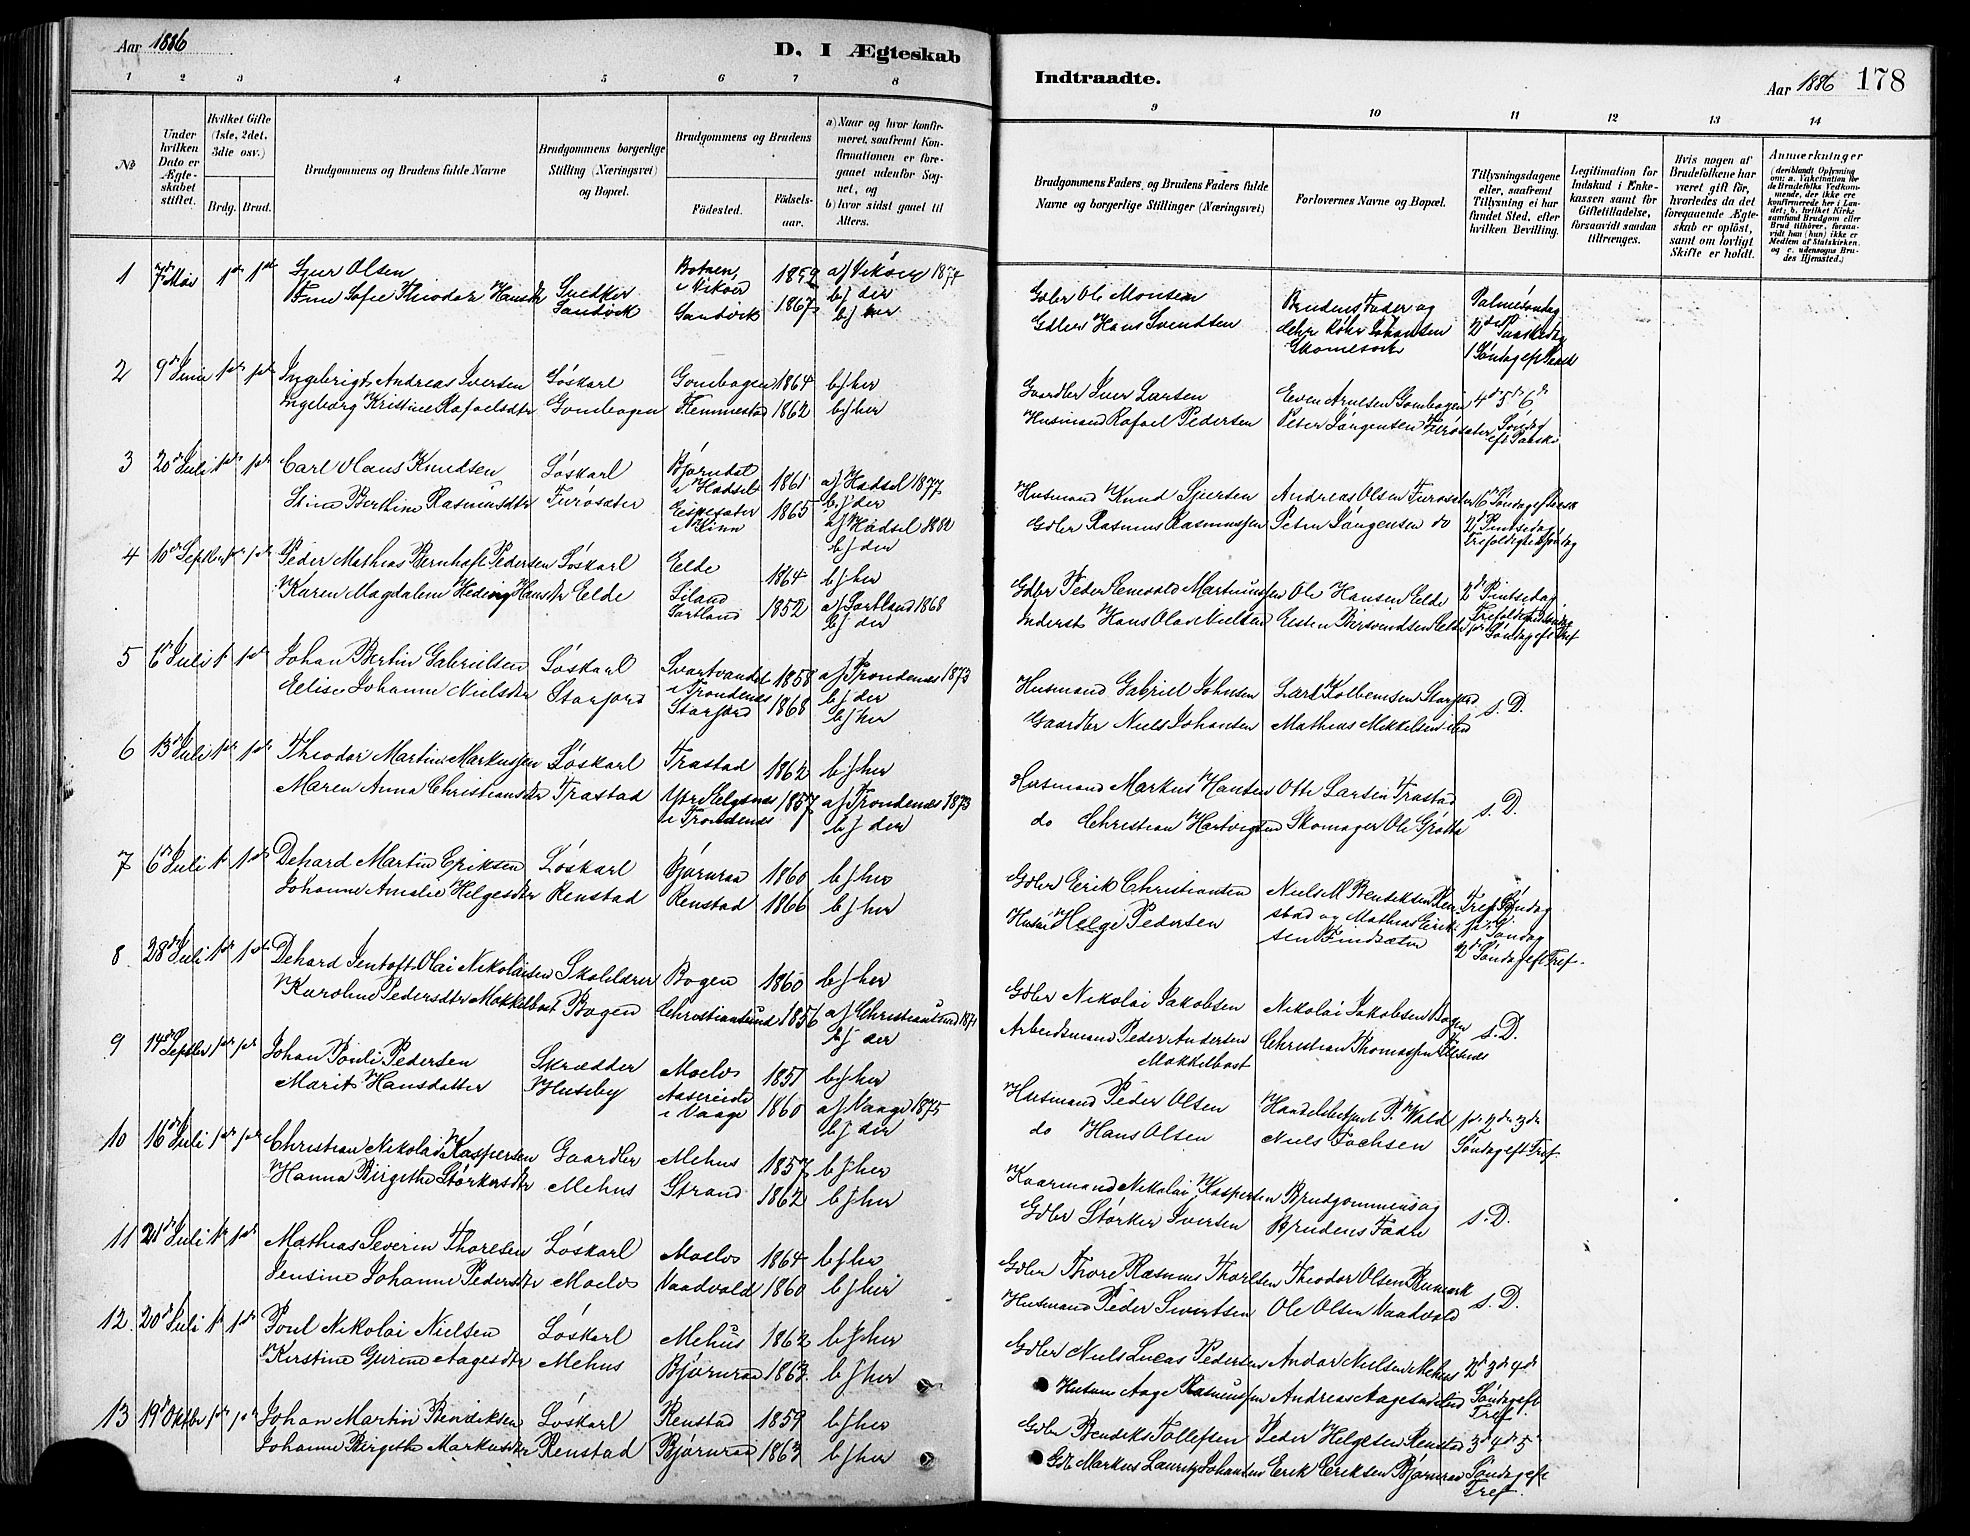 Aar 1886
D. I Ægteskab
1 2 3 4 5 6 7 8
No
Under hvilken Dato er Ægteskabet stiftet.
Hvilket Gifte (1ste, 2det, 3die osv.)
Brdg. Brud.
Brudgommens og Brudens fulde Navne
Brudgommens borgerlige Stilling (Næringsvei) og Bopæl.
Brudgommens og Brudens
Fødested.
Fødselsaar.
a) Naar og hvor konfirmeret, saafremt Konfirmationen er foregaaet udenfor Sognet, og
b) hvor sidst gaaet til Alters.
1 7de Mai 1ste 1ste Olsen Snedker 1859 a) Vikøer 1874
Sofie Theodor Hansdtr Sandvik Sandvik 1867 b) der
b) her
2 9de Juni Ingebrigt Andreas Iversen Løskarl Gombogen 1864 b) her
Ingeborg Kristine Rafaelsdtr Gombogen Hemmestad 1862 b) her
3 20de Juli Carl Hans Knudsen Løskarl Bjørndal i Hadsel 1861 a) Hadsel 1877
b) der
Stine Berthine Rasmusdtr Furøsæter i Kinn 1865 a) Hadsel
b) der
4 10de Septbr Peder Mathias Bernhoft Pedersen Løskarl Elde 1864 b) her
Karen Magdalene Hansdtr Elde Sortland 1852 a) Sortland 1868
b) der
5 6te Juli Johan Bertin Gabrielsen Løskarl Svartvandet i Trondenes 1858 a) Trondenes 1873
b) der
Elise Johanne Nielsdtr Storjord Storjord 1868 b) her
6 13de Juli Theodor Martin Markussen Løskarl Trastad 1862 b) her
Maren Anna Christiansdtr Trastad i Trondenes 1857 a) Trondenes 1873
b) der
7 6te Juli Dehard Martin Eriksen Løskarl Bjørnraa 1860 b) her
Johanne Amalie Helgesdtr Renstad Renstad 1866 b) her
8 28de Juli Dehard Jentoft Olai Nikolaisen Skolelærer Bogen 1860 b) her
Karoline Pedersdtr Mokkelbost Bogen Christiansund 1856 a) Christiansund 1871
b) der
9 14de Septbr Johan Pouli Pedersen Skrædder Moelv 1851 b) her
Marit Hansdatter Huseby i Vaage 1860 a) Vaage 1875
b) der
10 16de Juli Christian Nikolai Kaspersen Gaardbr Mehus 1857 b) her
Hanna Birgithe Størkersdtr Mehus Strand 1862 b) her
11 21de Juli Mathias Severin Thoresen Løskarl Moelv 1864 b) her
Jensine Johanne Pedersdtr Moelv Vaadvold 1860 b) her
12. 20de Juli Poul Nikolai Nielsen Løskarl Mehus 1862 b) her
Kirstine Gurine Aagesdtr Mehus Bjørnraa 1863. b) her
13 19de Oktbr Johan Martin Bendiksen Løskarl Renstad 1859 b) her
Johanne Birgithe Markusdtr Renstad Bjørnraa 1863 b) her
Indtraadte.
Aar 1886 178
9 10 11 12 13 14
Brudgommens Faders, og Brudens Faders fulde Navne og borgerlige Stillinger (Næringsvei)
Forlovernes Navne og Bopæl.
Tillysningsdagene eller, saafremt Tillysning ei har fundet Sted, efter hvilken Bevilling.
Legitimation for Indskud i Enkekassen samt for Giftetilladelse, forsaavidt saadan tiltrænges.
Hvis nogen af Brudefolkene har været gift før, hvorledes da det foregaaende Ægteskab er opløst, samt om lovligt Skifte er holdt.
Anmerkninger
(deriblandt Oplysning om: a. Vakcination for de Brudefolks Vedkommende, der ikke ere konfirmerede her i Landet; b. hvilket Kirkesamfund Brudgom eller Brud tilhører, forsaavidt han (hun) ikke er Medlem af Statskirken, og c. udensogns Brudes Hjemsted.)
Gdbr Ole Monsen Brudens Fader og Palmesøndag
Gdbr Hans Svendsen Johansen 2den Paaskedag
1 Søndag eft Paaske
Gaardbr Iver Larsen Even Arntsen Gombogen 4de 5te 6te
Husmand Rafael Pedersen Peter Jørgensen Furøsæter Søndag eft Paaske
Husmand Knud Andreas Olsen Furøsæter 6te Søndag eft Paaske
Gdbr Rasmus Rasmussen Peter Jørgensen do 2den Pintsedag
Trefoldighedssøndag
Gdbr Peder Martinussen Ole Hansen Elde 2den Pintsedag
Inderst Hans Olai Nielsen Trefoldighedssøndag
Søndag eft Tref
Husmand Gabriel Johnsen Lars Kolbensen Storjord s. D.
Gaardbr Niels Johansen Mathias Mikkelsen
Husmand Markus Hansen Otto Larsen Trastad s. D.
do Christian Hartvigsen Skomager Ole Grøtta
Gdbr Erik Christiansen Niels M Bendiksen Ren Tref Søndag
Husm Helge Pedersen stad og Mathias Erik 1ste Søndag
sen 2den Søndag eft Tref.
Gdbr Nikolai Jakobsen Nikolai Jakobsen Bogen s. D.
Arbeidsmand Peder Andersen Christian Thomassen
Mokkelbost
Husmand Peder Olsen P. Wold 1ste 2den 3die
do Hans Olsen Niels Fochsen Søndag eft Tref.
Kaarmand Nikolai Kaspersen Brudgommens og s. D.
Gdbr Størker Iversen Brudens Fader
Gdbr Thore Rasmus Thorsen Theodor Olsen s. D.
Husmand Peder Sivertsen Ole Olsen Vaadvold
Gdbr Niels Lucas Pedersen Andor Nielsen Mehus 2den 3die 4de
Husm Aage Rasmussen Andreas Aagesen Søndag eft Tref
Gdbr Bendiks Tollefsen Peder Helgesen Renstad 3die 4de 5te
Gdb Markus Lauritz Johansen Erik Eriksen Bjørnraa Søndag eft Tref.